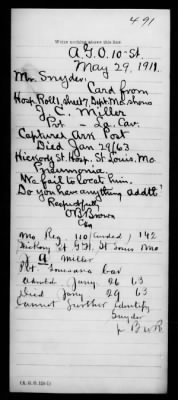 491
Write nothing above this line
A.G.O. 10-St.
May 29, 1911.
Mr. Snyder.
Card from
Hosp. Roll, sheet 7, Dept. Mo. shows
C. Miller
Pvt. - La. Cav.
Captured Ark Post
Died Jan 29/63
Hickory St. Hosp. St Louis, Mo.
Pneumonia.
We fail to locate him.
Do you have anything addtl?
Respectfully
O B Brown
Mo Reg 110 142
Hickory St G.H. St Louis Mo
A Miller
Pvt Louisiana Cav
Jany 26 63
Died Jany 29 63
Cannot further identify
Snyder